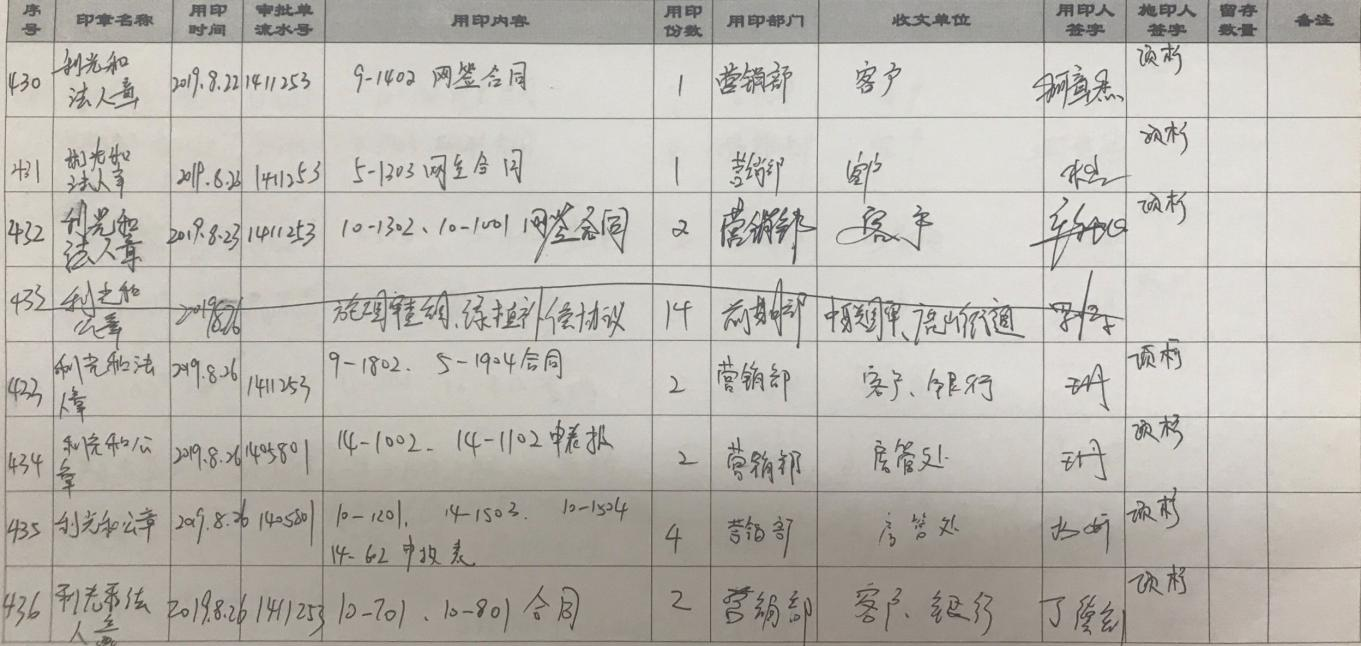 序号 印章名称 用印时间 审批单流水号 用印内容 用印份数 用印部门 收文单位 用印人签字 施印人签字 留存数量 备注
430 利光和法人章 2019.8.22 1411253 9-1402 网签合同 1 营销部 客户 项杉
431 利光和法人章 2019.8.23 1411253 5-1203 网签合同 1 营销部 客户 项杉
432 利光和法人章 2019.8.23 1411253 10-1302、10-1001 网签合同 2 营销部 客户 项杉
433 利光和公章 2019.8.26 绿植补偿协议 14 前期部
433 利光和法人章 2019.8.26 1411253 9-1802、5-1904合同 2 营销部 客户、银行 王丹 项杉
434 利光和公章 2019.8.26 1405801 14-1002、14-1102申报表 2 营销部 房管处 王丹 项杉
435 利光和公章 2019.8.26 1405801 10-1201、14-1503、10-1504
14-62申报表 4 营销部 房管处 项杉
436 利光和法人章 2019.8.26 1411253 10-701、10-801合同 2 营销部 客户、银行 项杉